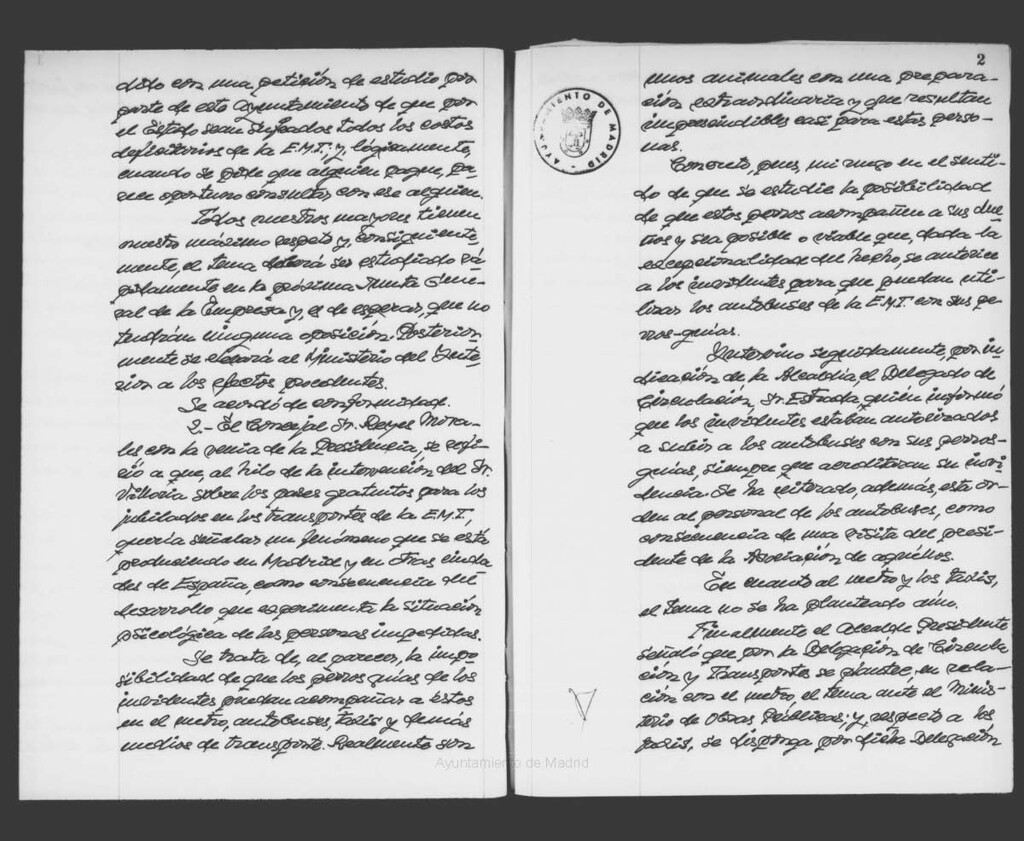 dido con una petición de estudio por
parte de este Ayuntamiento de que por
el Estado sean sufragados todos los costos
deficitarios de la E.M.T.; y, lógicamente,
cuando se pide que alguien pague, pa-
rece oportuno consultar con ese alguien.
Todos nuestros mayores tienen
nuestro máximo respeto y, consiguiente
mente, el tema deberá ser estudiado rá-
pidamente en la próxima Junta Gene-
ral de la Empresa y, es de esperar, que no
tendrán ninguna oposición. Posterior-
mente se elevará al Ministerio del Inte-
rior a los efectos procedentes.
Se acordó de conformidad.
2.- El Concejal Sr. Reyes Mora-
les con la venia de la Presidencia, se refi-
rió a que, al hilo de la intervención del Sr.
Villoria sobre los pases gratuitos para los
jubilados en los transportes de la E.M.T.,
quería señalar un fenómeno que se está
produciendo en Madrid y en otras ciuda
des de España, como consecuencia del
desarrollo que experimenta la situación
psicológica de las personas impedidas.
Se trata de, al parecer, la impo-
sibilidad de que los perros guías de los
invidentes puedan acompañar a éstos
en el metro, autobuses, taxis y demás
medios de transporte. Realmente son
2
AYUNTAMIENTO DE MADRID
unos animales con una prepara-
ción extraordinaria y que resultan
imprescindibles casi para estas perso-
nas.
Concreto, pues, mi ruego en el senti-
do de que se estudie la posibilidad
de que estos perros acompañen a sus due
ños y sea posible o viable que, dada la
excepcionalidad del hecho, se autorice
a los invidentes para que puedan uti-
lizar los autobuses de la E.M.T. con sus pe-
rros-guías.
Intervino seguidamente, por in-
dicación de la Alcaldía, el Delegado de
Circulación, Sr. Estrada quién informó
que los invidentes estaban autorizados
a subir a los autobuses con sus perros-
guías, siempre que acreditaran su invi-
dencia. Se ha reiterado, además, esta or-
den al personal de los autobuses, como
consecuencia de una visita del presi-
dente de la Asociación de aquéllos.
En cuanto al metro y los taxis,
el tema no se ha planteado aún.
Finalmente el Alcalde Presidente
señaló que por la Delegación de Circula
ción y Transportes se plantee, en rela-
ción con el metro, el tema ante el Minis-
terio de Obras Públicas; y, respecto a los
taxis, se disponga por dicha Delegación
Ayuntamiento de Madrid